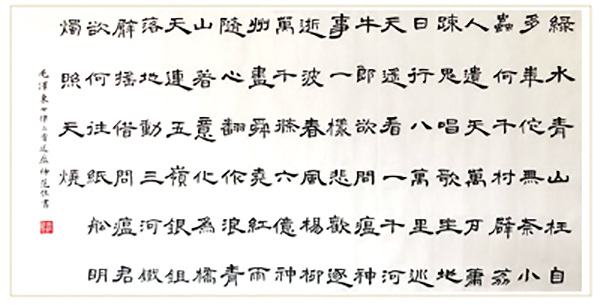 綠水青山枉自
多華佗無奈小
蟲何千村薜荔
人遺矢萬戶蕭
踈鬼唱歌坐地
日行八萬里巡
天遙看一千河
牛郎欲問瘟神
事一樣悲歡逐
逝波春風楊柳
萬千條六億神
州盡舜堯紅雨
隨心翻作浪青
山著意化為橋
天連五嶺銀鉏
落地動三河鐵
臂搖借問瘟君
欲何往紙船明
燭照天燒
毛澤東七律二首送瘟神